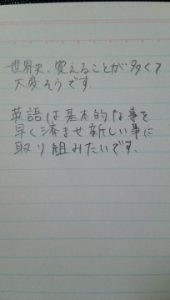 世界史、覚えることが多くて
大変そうです。
英語は基本的な事を
早く済ませ新しい事に
取り組みたいです。